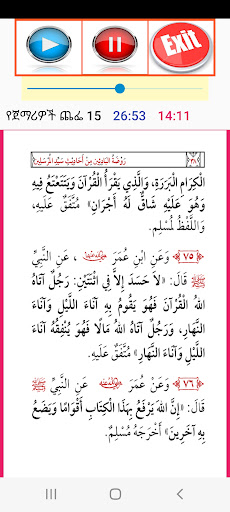 Exit
የጀማሪዎች ጨፌ 15 26:53 14:11
رَوْضَةُ العَابِدِينَ مِنْ أَحَادِيثِ سَيِّدِ المُرْسَلِينَ
الْكِرَامِ الْبَرَرَةِ، وَالَّذِي يَقْرَأُ الْقُرْآنَ وَيَتَتَعْتَعُ فِيهِ
وَهُوَ عَلَيْهِ شَاقٌّ لَهُ أَجْرَانِ» مُتَّفَقٌ عَلَيْهِ،
وَاللَّفْظُ لِمُسْلِمٍ.
﴿٧٥﴾ وَعَنِ ابْنِ عُمَرَ ، عَنِ النَّبِيِّ
ﷺ قَالَ: «لَا حَسَدَ إِلَّا فِي اثْنَتَيْنِ: رَجُلٌ آتَاهُ
اللهُ الْقُرْآنَ فَهُوَ يَقُومُ بِهِ آنَاءَ اللَّيْلِ وَآنَاءَ
النَّهَارِ، وَرَجُلٌ آتَاهُ اللهُ مَالًا فَهُوَ يُنْفِقُهُ آنَاءَ
اللَّيْلِ وَآنَاءَ النَّهَارِ» مُتَّفَقٌ عَلَيْهِ.
﴿٧٦﴾ وَعَنْ عُمَرَ عَنِ النَّبِيِّ ﷺ
قَالَ: «إِنَّ اللهَ يَرْفَعُ بِهَذَا الْكِتَابِ أَقْوَامًا وَيَضَعُ
بِهِ آخَرِينَ» أَخْرَجَهُ مُسْلِمٌ.